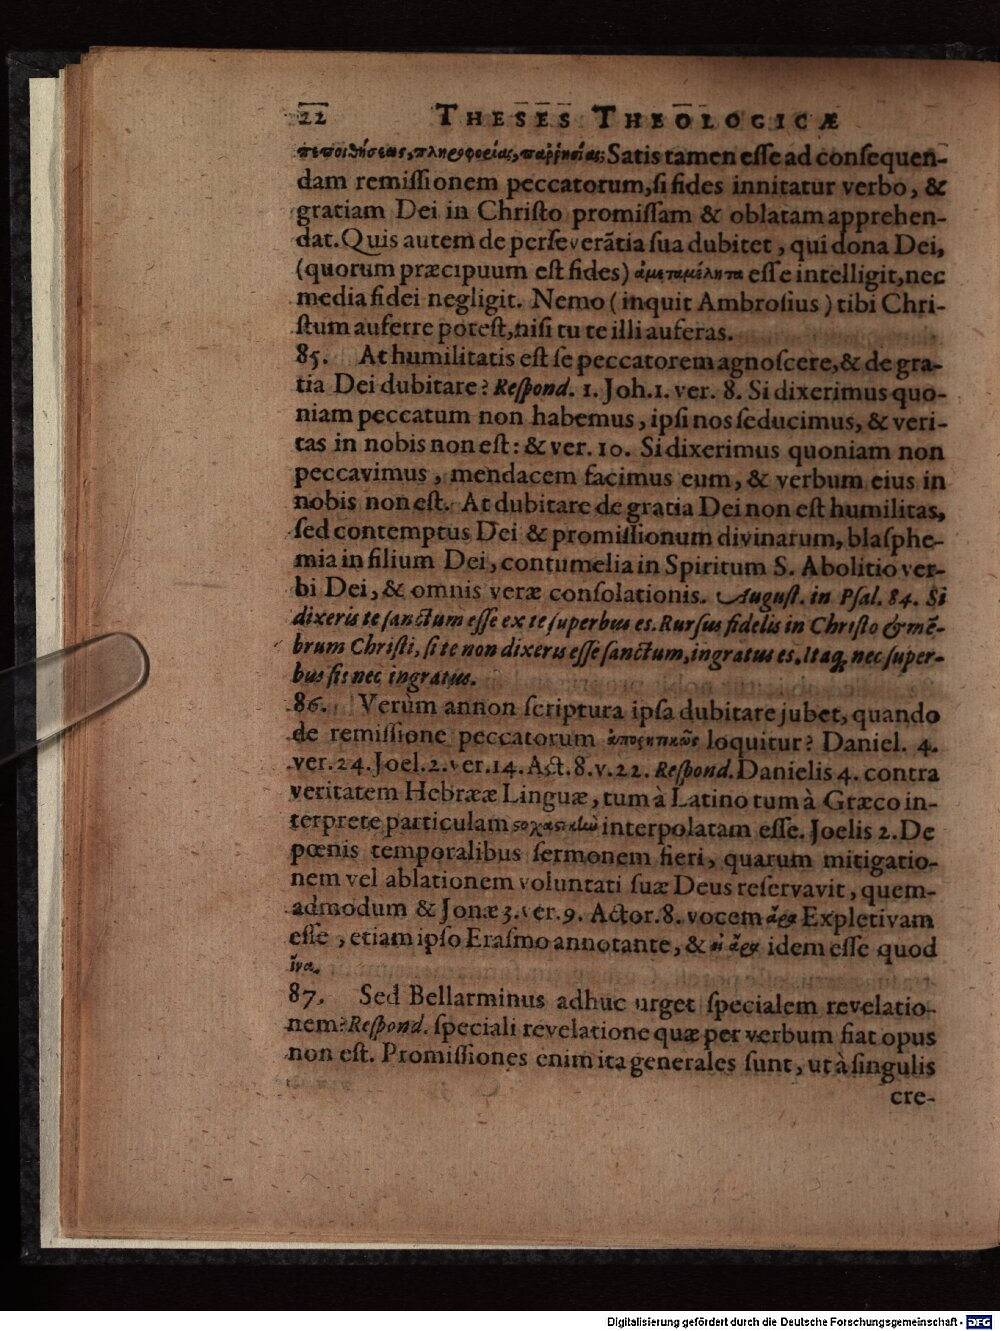 22 THESES THEOLOGICÆ
πεποιθήσεως, πληροφορίας, παῤῥησίας; Satis tamen esse ad consequen-
dam remissionem peccatorum, si fides innitatur verbo, &
gratiam Dei in Christo promissam & oblatam apprehen-
dat. Quis autem de perseverãtia sua dubitet, qui dona Dei,
(quorum præcipuum est fides) ἀμεταμέλητα esse intelligit, nec
media fidei negligit. Nemo (inquit Ambrosius) tibi Chri-
stum auferre potest, nisi tu te illi auferas.
85. At humilitatis est se peccatorem agnoscere, & de gra-
tia Dei dubitare? Respond. 1. Joh. 1. ver. 8. Si dixerimus quo-
niam peccatum non habemus, ipsi nos seducimus, & veri-
tas in nobis non est: & ver. 10. Si dixerimus quoniam non
peccavimus, mendacem facimus eum, & verbum eius in
nobis non est. At dubitare de gratia Dei non est humilitas,
sed contemptus Dei & promissionum divinarum, blasphe-
mia in filium Dei, contumelia in Spiritum S. Abolitio ver-
bi Dei, & omnis veræ consolationis. August. in Psal. 84. Si
dixeris te sanctum esse ex te superbus es. Rursus fidelis in Christo & mẽ-
brum Christi, si te non dixeris esse sanctum, ingratus es. Itaq; nec super-
bus sis nec ingratus.
86. Verùm annon scriptura ipsa dubitare jubet, quando
de remissione peccatorum loquitur? Daniel. 4.
ver. 24. Joel. 2. ver. 14. Act. 8. v. 22. Respond. Danielis 4. contra
veritatem Hebrææ Linguæ, tum à Latino tum à Græco in-
terprete particulam interpolatam esse. Joelis 2. De
pœnis temporalibus sermonem fieri, quarum mitigatio-
nem vel ablationem voluntati suæ Deus reservavit, quem-
admodum & Jonæ 3. ver. 9. Actor. 8. vocem ἄρα Expletivam
esse, etiam ipso Erasmo annotante, & εἰ ἄρα idem esse quod
ἵνα.
87. Sed Bellarminus adhuc urget specialem revelatio-
nem? Respond. speciali revelatione quæ per verbum fiat opus
non est. Promissiones enim ita generales sunt, ut à singulis
cre-
Digitalisierung gefördert durch die Deutsche Forschungsgemeinschaft - DFG